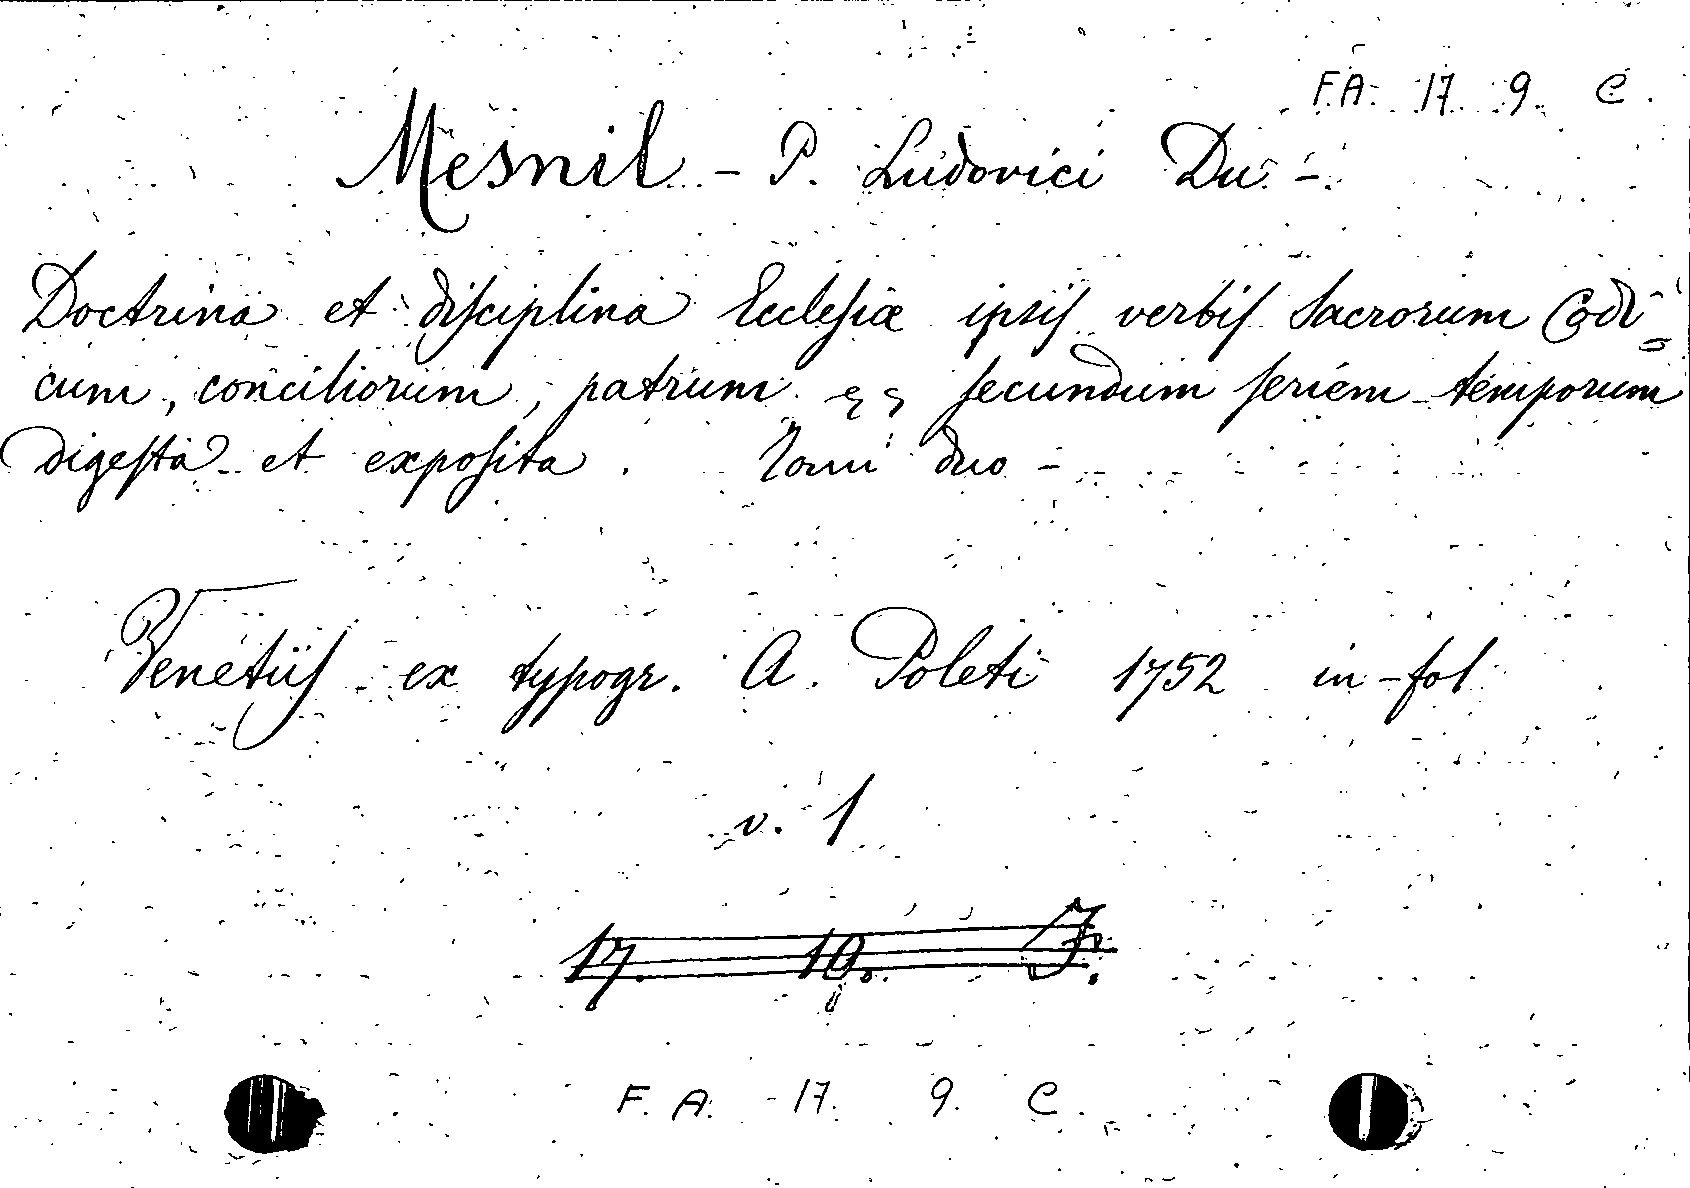 F.A. 17. 9. C.
Mesnil - P. Ludovici Du -.
Doctrina et disciplina Ecclesiæ ipsis verbis sacrorum Codi=
cum, conciliorum, patrum secundum seriem temporum
digesta et exposita. Tomi duo -
Venetiis ex typogr. A. Poleti 1752 in-fol
v. 1
17. 10. F.
F. A. 17. 9. C.